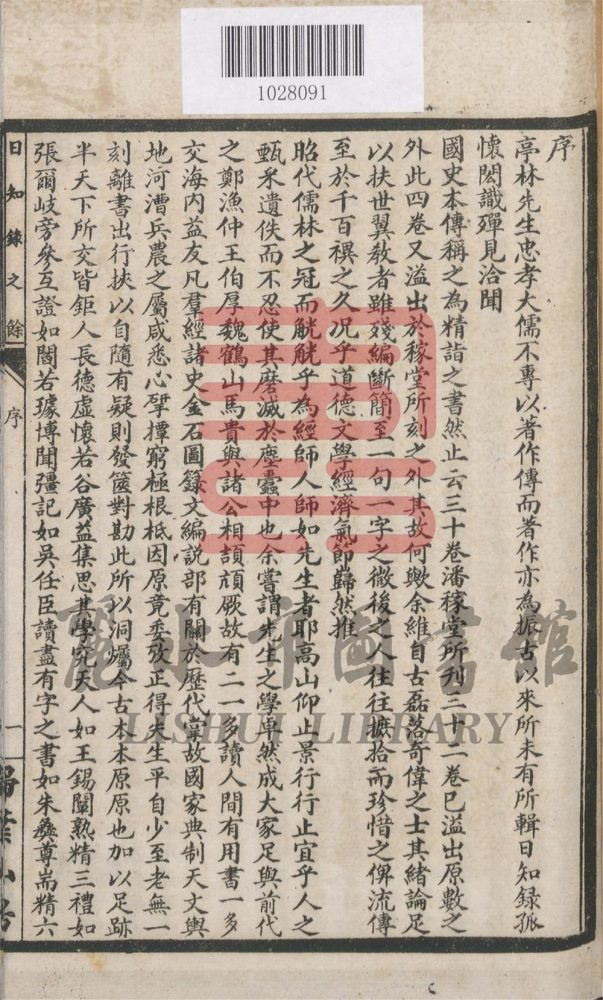 1028091
序
亭林先生忠孝大儒不專以著作傳而著作亦為振古以來所未有所輯日知録孤
懷閎識殫見洽聞
國史本傳稱之為精詣之書然止云三十卷潘稼堂所刊三十二卷已溢出原數之
外此四卷又溢出於稼堂所刻之外其故何歟余維自古磊落奇偉之士其緒論足
以扶世翼教者雖殘編斷簡至一句一字之微後之人往往摭拾而珍惜之俾流傳
至於千百禩之久况乎道德文學經濟氣節巋然推
昭代儒林之冠而觥觥乎為經師人師如先生者耶高山仰止景行行止宜乎人之
甄采遺佚而不忍使其磨滅於塵蠹中也余嘗謂先生之學卓然成大家足與前代
之鄭漁仲王伯厚魏鶴山馬貴與諸公相頡頏厥故有二一多讀人間有用書一多
交海内益友凡羣經諸史金石圖録文編説部有關於歷代掌故國家典制天文輿
地河漕兵農之屬咸悉心揅撢窮極根柢因原竟委攷正得失生平自少至老無一
刻離書出行挾以自隨有疑則發篋對勘此所以洞矚今古本本原原也加以足跡
半天下所交皆鉅人長德虛懷若谷廣益集思其學究天人如王錫闡熟精三禮如
張爾岐旁參互證如閻若璩博聞彊記如吳任臣讀盡有字之書如朱彝尊耑精六
日知錄之餘
序
一
掃葉山房
麗水市圖書館
LISHUI LIBRARY